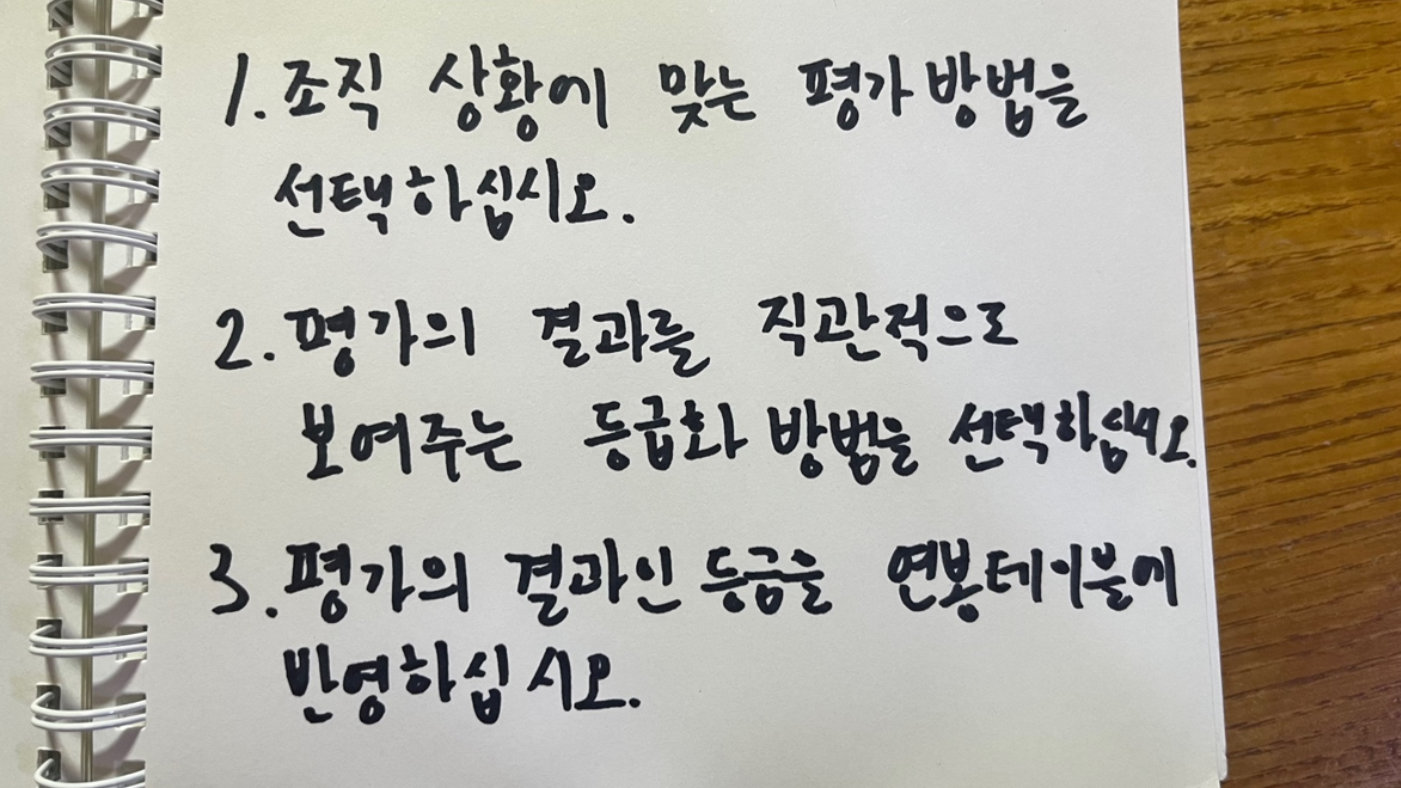 1. 조직 상황에 맞는 평가 방법을
선택하십시오.
2. 평가의 결과를 직관적으로
보여주는 등급화 방법을 선택하십시오.
3. 평가의 결과인 등급을 연봉테이블에
반영하십시오.